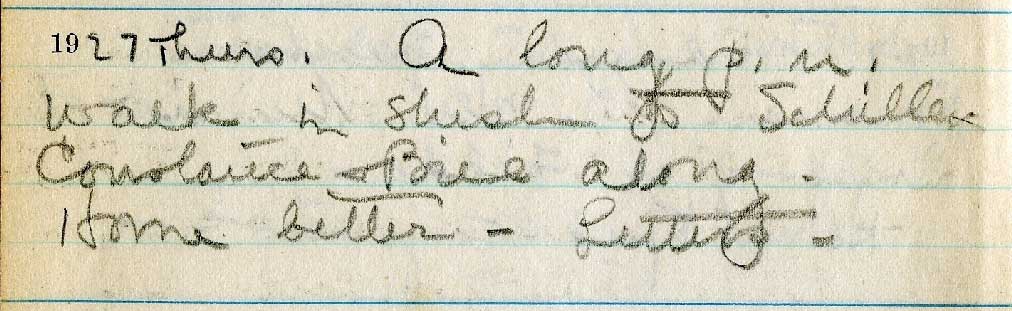 1927 Thurs. A long p.m.
walk in slush to Schiller
Constance & Bill along.
Home better - Letters -